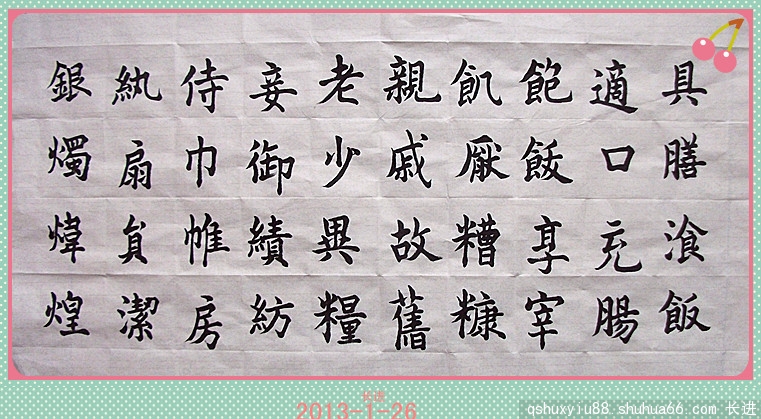 具膳飡飯
適口充腸
飽飫享宰
飢厭糟糠
親戚故舊
老少異糧
妾御績紡
侍巾帷房
紈扇員潔
銀燭煒煌
长进
2013-1-26
qshuxyiu88.shuhua66.com 长进